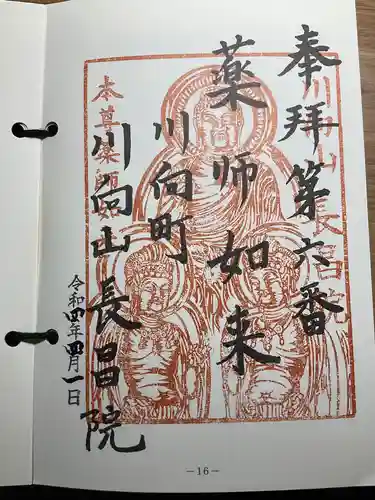 奉拝第六番
薬師如来
川向町
川向山長昌院
令和四年四月一日
川向山長昌院
本尊薬師如来
－16－